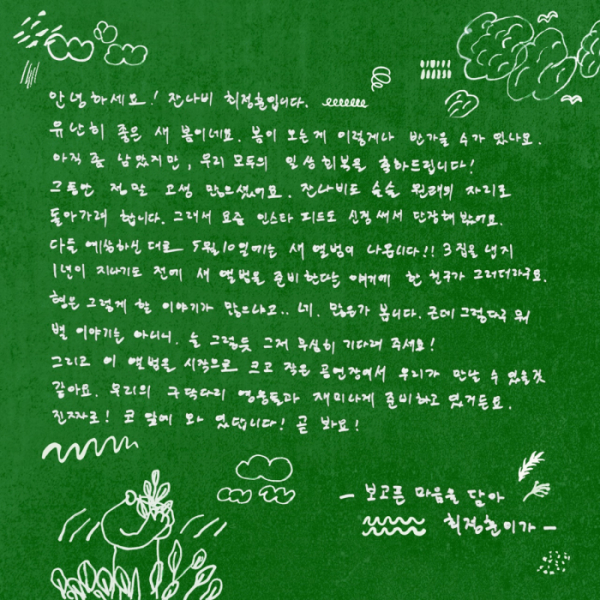 안녕하세요! 잔나비 최정훈입니다.
유난히 좋은 새 봄이네요. 봄이 오는게 이렇게나 반가울 수가 있나요.
아직 좀 남았지만, 우리 모두의 일상회복을 축하드립니다!
그동안 정말 고생 많으셨어요. 잔나비도 슬슬 원래의 자리로
돌아가려 합니다. 그래서 요즘 인스타 피드도 신경써서 단장해 봤어요.
다들 예상하신 대로 5월10일에는 새 앨범이 나옵니다!! 3집을 낸지
1년이 지나기도 전에 새 앨범을 준비한다는 얘기에 한 친구가 그러더라구요.
형은 그렇게 할 이야기가 많으냐고.. 네. 많은가 봅니다. 근데 그렇다구 뭐
별 이야기는 아니니. 늘 그렇듯 그저 무심히 기다려 주세요!
그리고 이 앨범을 시작으로 크고 작은 공연장에서 우리가 만날 수 있을것
같아요. 우리의 구닥다리 영웅들과 재미나게 준비하고 있거든요.
진짜루! 코 앞에 와 있답니다! 곧 봐요!
- 보고픈 마음을 담아
최정훈이가 -